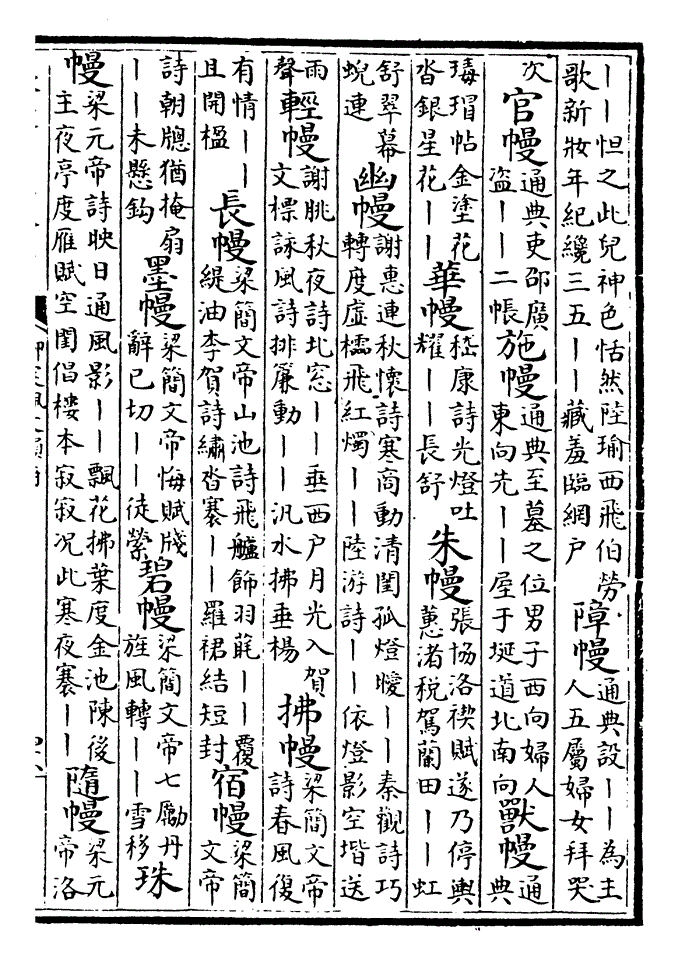 ——怛之此兒神色恬然陸瑜西飛伯勞
歌新妝年紀纔三五——藏羞臨網戶
障幔
通典設——為主
人五屬婦女拜哭
次
官幔
通典吏邵廣
盜——二帳
施幔
通典至墓之位男子西向婦人
東向先——屋于埏道北南向
獸幔
通
典
瑇瑁帖金塗花
沓銀星花——
華幔
嵇康詩光燈吐
耀——長舒
朱幔
張協洛禊賦遂乃停輿
蕙渚税駕蘭田——虹
舒翠幕
蜺連
幽幔
謝惠連秋懷詩寒商動清閨孤燈曖——秦觀詩巧
轉度虛檽飛紅燭——陸游詩——依燈影空堦送
雨
聲
輕幔
謝朓秋夜詩北窓——垂西户月光入賀
文標詠風詩排簾動——汎水拂垂楊
拂幔
梁簡文帝
詩春風復
有情——
且開楹
長幔
梁簡文帝山池詩飛艫飾羽毦——覆
緹油李賀詩繡沓褰——羅裙結短封
宿幔
梁簡
文帝
詩朝牕猶掩扇
——未懸鈎
墨幔
梁簡文帝悔賦牋
辭已切——徒縈
碧幔
梁簡文帝七勵丹
旌風轉——雪移
珠
幔
梁元帝詩映日通風影——飄花拂葉度金池陳後
主夜亭度雁賦空閨倡樓本寂寂况此寒夜褰——
隨幔
梁元
帝洛